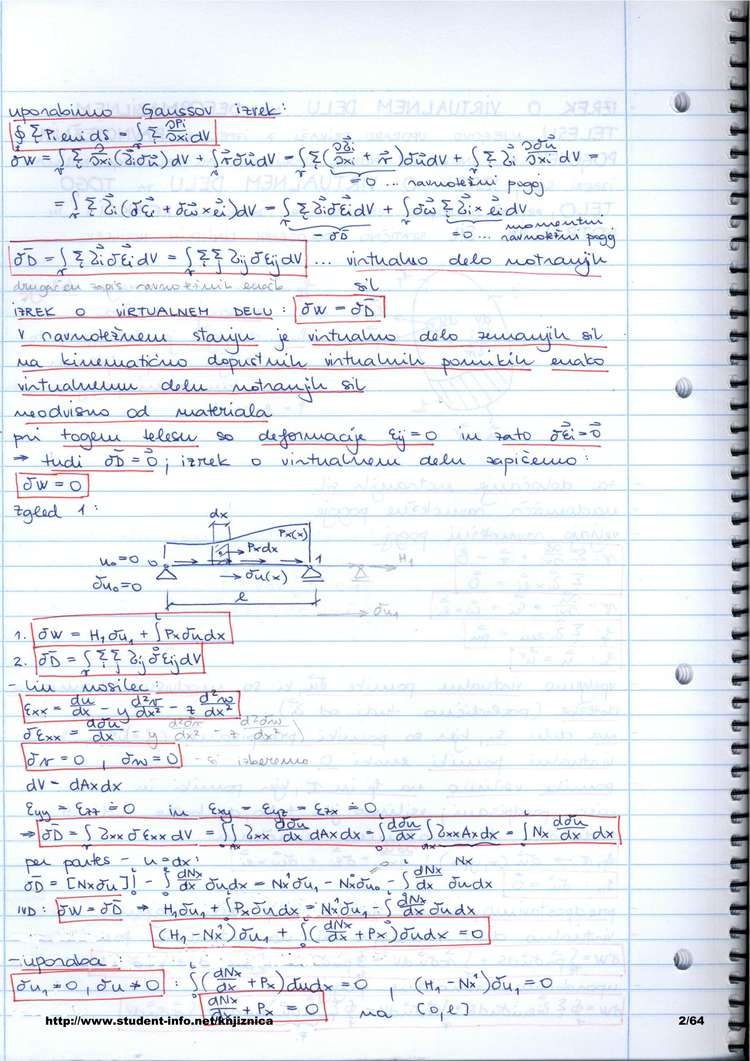 uporabimo Gaussov izrek:
∮ Σ Pi eni dS = ∫ Σ ∂Pi/∂xi dV
δW = ∫ Σ ∂/∂xi (σ⃗i δu⃗) dV + ∫ v⃗ δu⃗ dV = ∫ Σ (∂σ⃗i/∂xi + v⃗) δu⃗ dV + ∫ Σ σ⃗i ∂δu⃗/∂xi dV =
= 0 ... ravnotežni pogoj
= ∫ Σ σ⃗i (δε⃗i + δω⃗ × e⃗i) dV = ∫ Σ σ⃗i δε⃗i dV + ∫ δω⃗ Σ σ⃗i × e⃗i dV
= δD̄
= 0 ... momentni ravnotežni pogoj
δD̄ = ∫ Σ σ⃗i δε⃗i dV = ∫ Σ Σ σij δεij dV ... virtualno delo notranjih sil
drugačen zapis ravnotežnih enačb
IZREK O VIRTUALNEM DELU : δW = δD̄
V ravnotežnem stanju je virtualno delo zunanjih sil
na kinematično dopustnih virtualnih pomikih enako
virtualnemu delu notranjih sil
neodvisno od materiala
pri togem telesu so deformacije εij = 0 in zato δε⃗i = 0⃗
→ tudi δD̄ = 0 ; izrek o virtualnem delu zapišemo :
δW = 0
Zgled 1 :
dx
Px(x)
Pxdx
u₀ = 0 0 1 H₁
δu₀ = 0 → δu(x)
ℓ δu₁
1. δW = H₁δu₁ + ∫ Px δu dx
2. δD̄ = ∫ Σ Σ σij δεij dV
- lin nosilec :
εxx = du/dx - y d²v/dx² - z d²w/dx²
δεxx = dδu/dx (- y d²δv/dx² - z d²δw/dx²)
δv = 0 , δw = 0 - si izberemo
dV = dAx dx
εyy = εzz = 0 in εxy = εyz = εzx = 0
→ δD̄ = ∫ σxx δεxx dV = ∫∫ σxx dδu/dx dAx dx = ∫ dδu/dx ∫ σxx Ax dx = ∫ Nx dδu/dx dx
Nx
per partes - u = dx :
δD̄ = [Nx δu]| - ∫ dNx/dx δu dx = Nx¹δu₁ - Nx⁰δu₀ - ∫ dNx/dx δu dx
IVD : δW = δD̄ → H₁δu₁ + ∫ Px δu dx = Nx¹δu₁ - ∫ dNx/dx δu dx
(H₁ - Nx¹) δu₁ + ∫ (dNx/dx + Px) δu dx = 0
- uporaba :
δu₁ = 0 , δu ≠ 0 : ∫ (dNx/dx + Px) δu dx = 0 , (H₁ - Nx¹) δu₁ = 0
dNx/dx + Px = 0 na [0, ℓ]
http://www.student-info.net/knjiznica 2/64